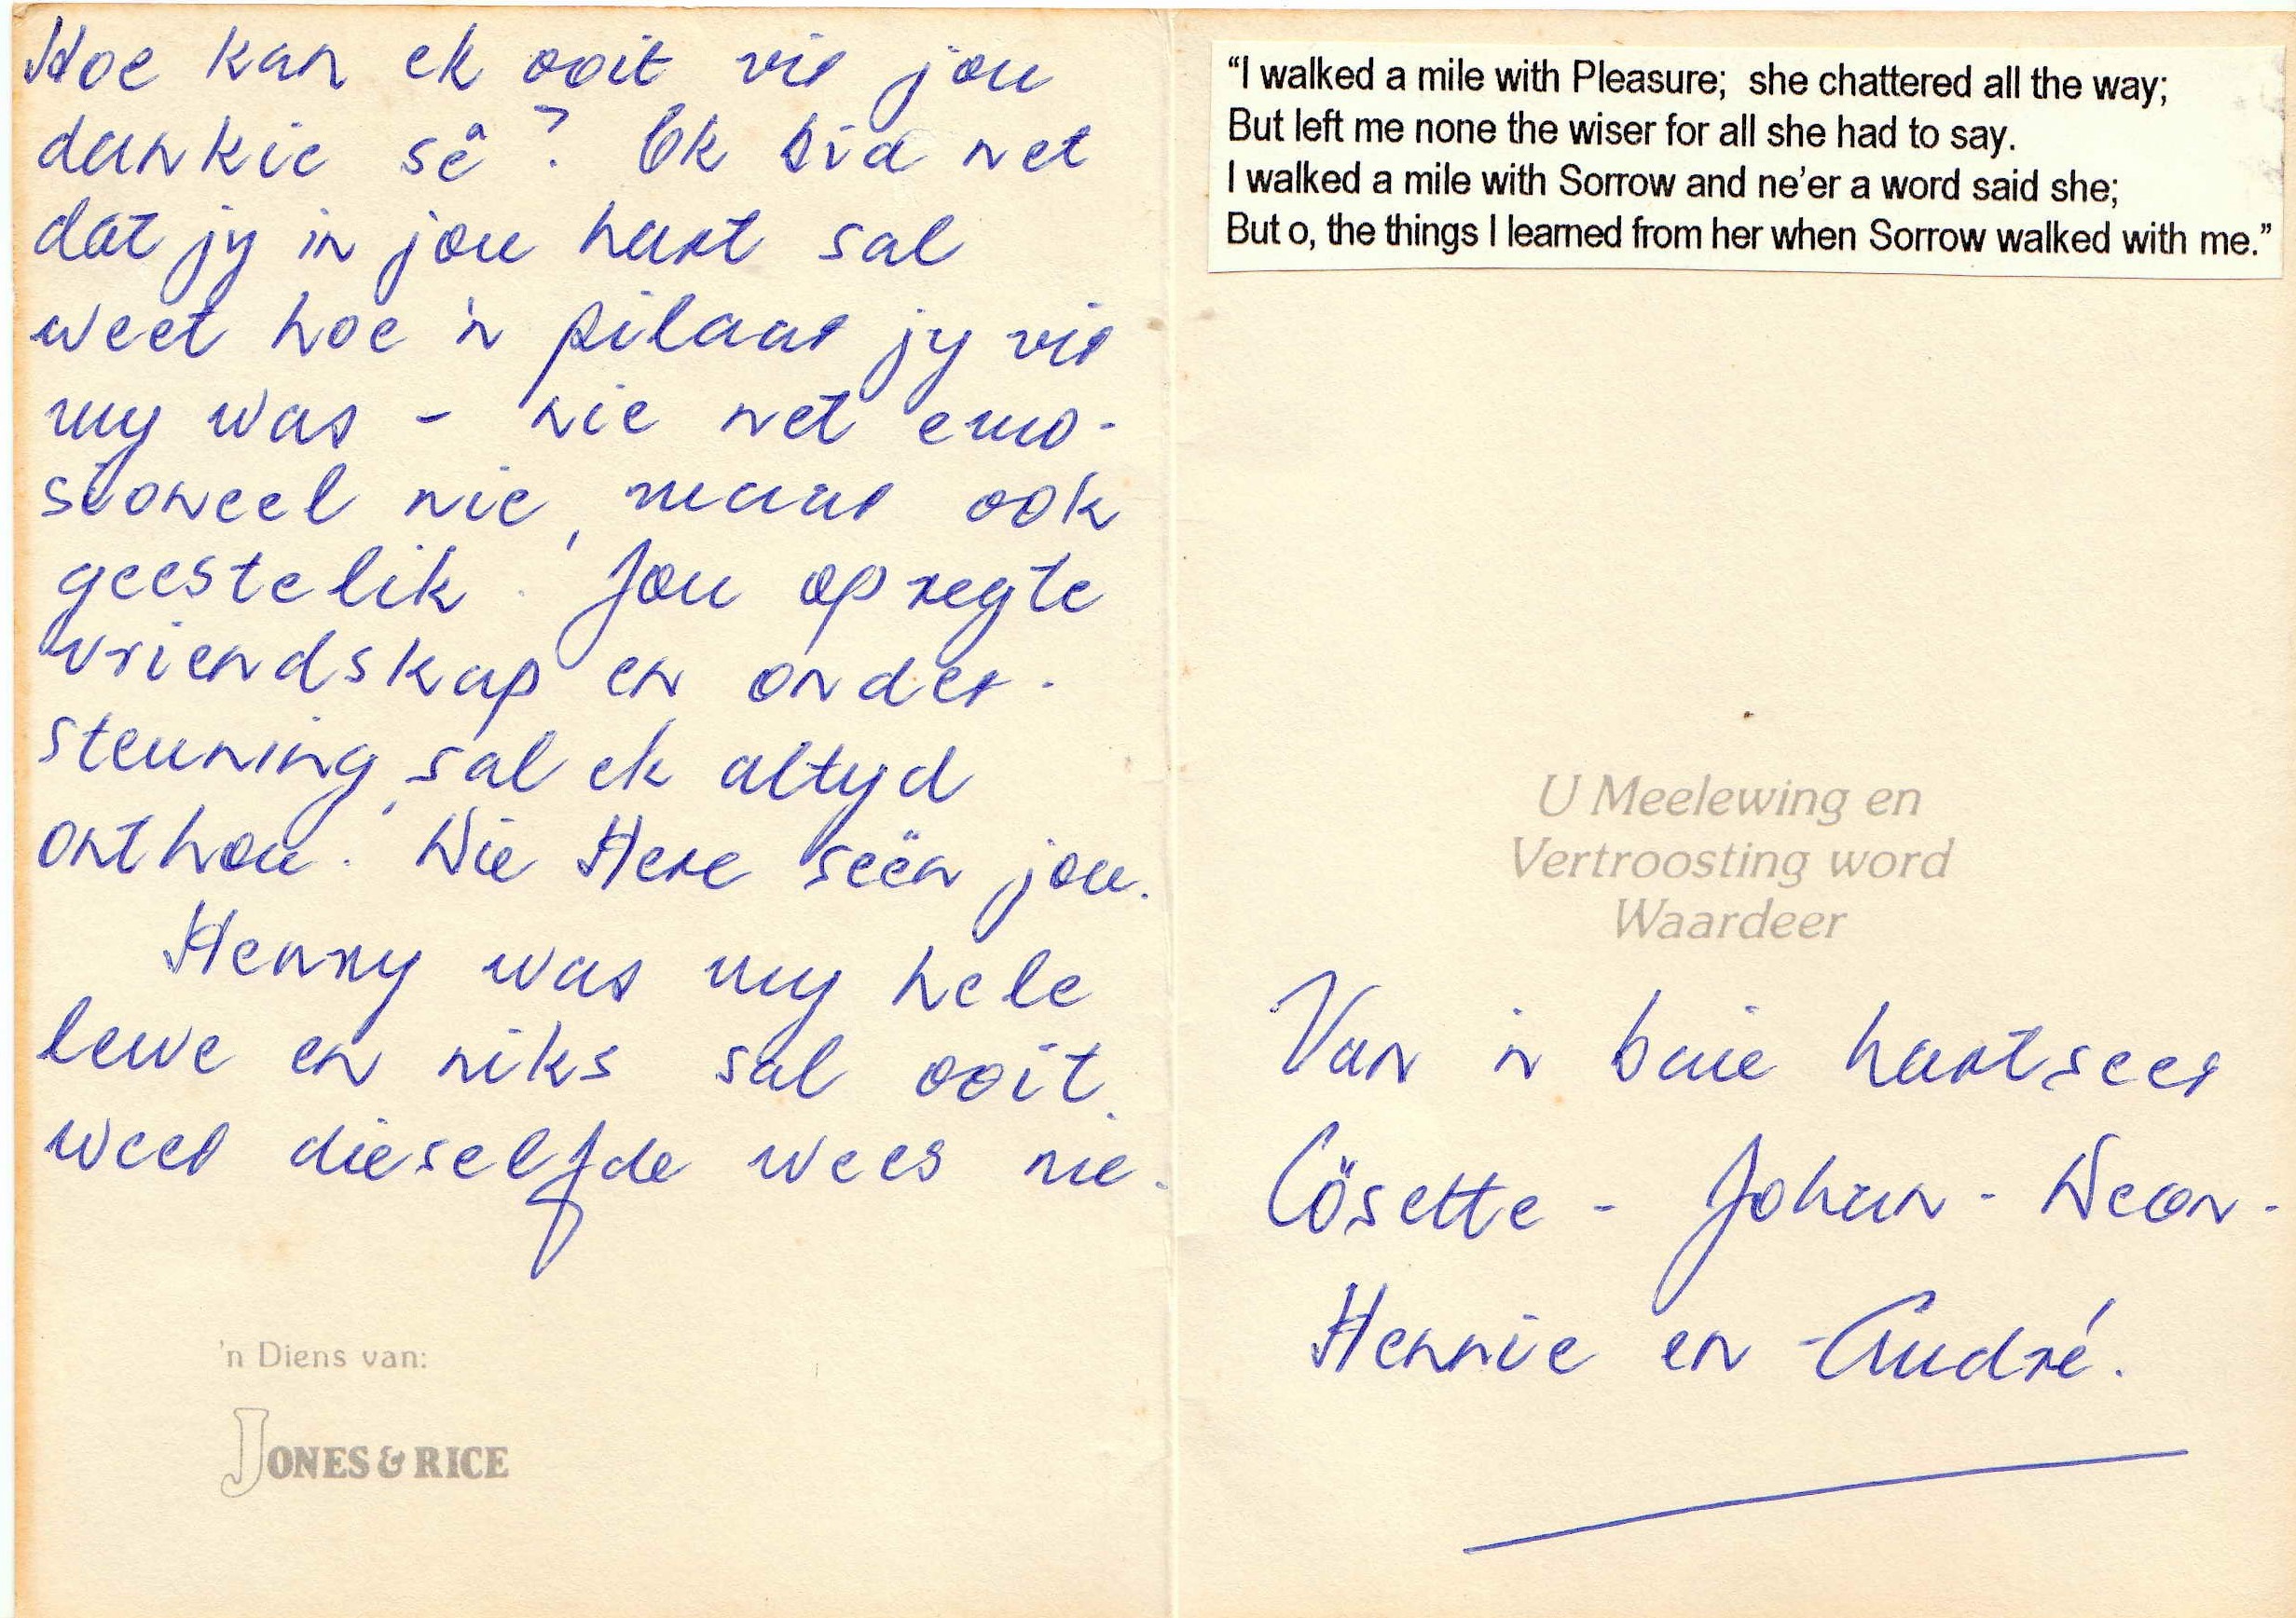 Hoe kan ek ooit vir jou
dankie sê? Ek bid net
dat jy in jou hart sal
weet hoe 'n pilaar jy vir
my was - nie net emo-
sioneel nie, maar ook
geestelik. Jou opregte
vriendskap en onder-
steuning, sal ek altyd
onthou. Die Here seën jou.
Henny was my hele
lewe en niks sal ooit
weer dieselfde wees nie.
'n Diens van:
JONES & RICE
“I walked a mile with Pleasure; she chattered all the way;
But left me none the wiser for all she had to say.
I walked a mile with Sorrow and ne’er a word said she;
But o, the things I learned from her when Sorrow walked with me.”
U Meelewing en
Vertroosting word
Waardeer
Van 'n baie hartseer
Cösette - Johan - Deon -
Hennie en André.